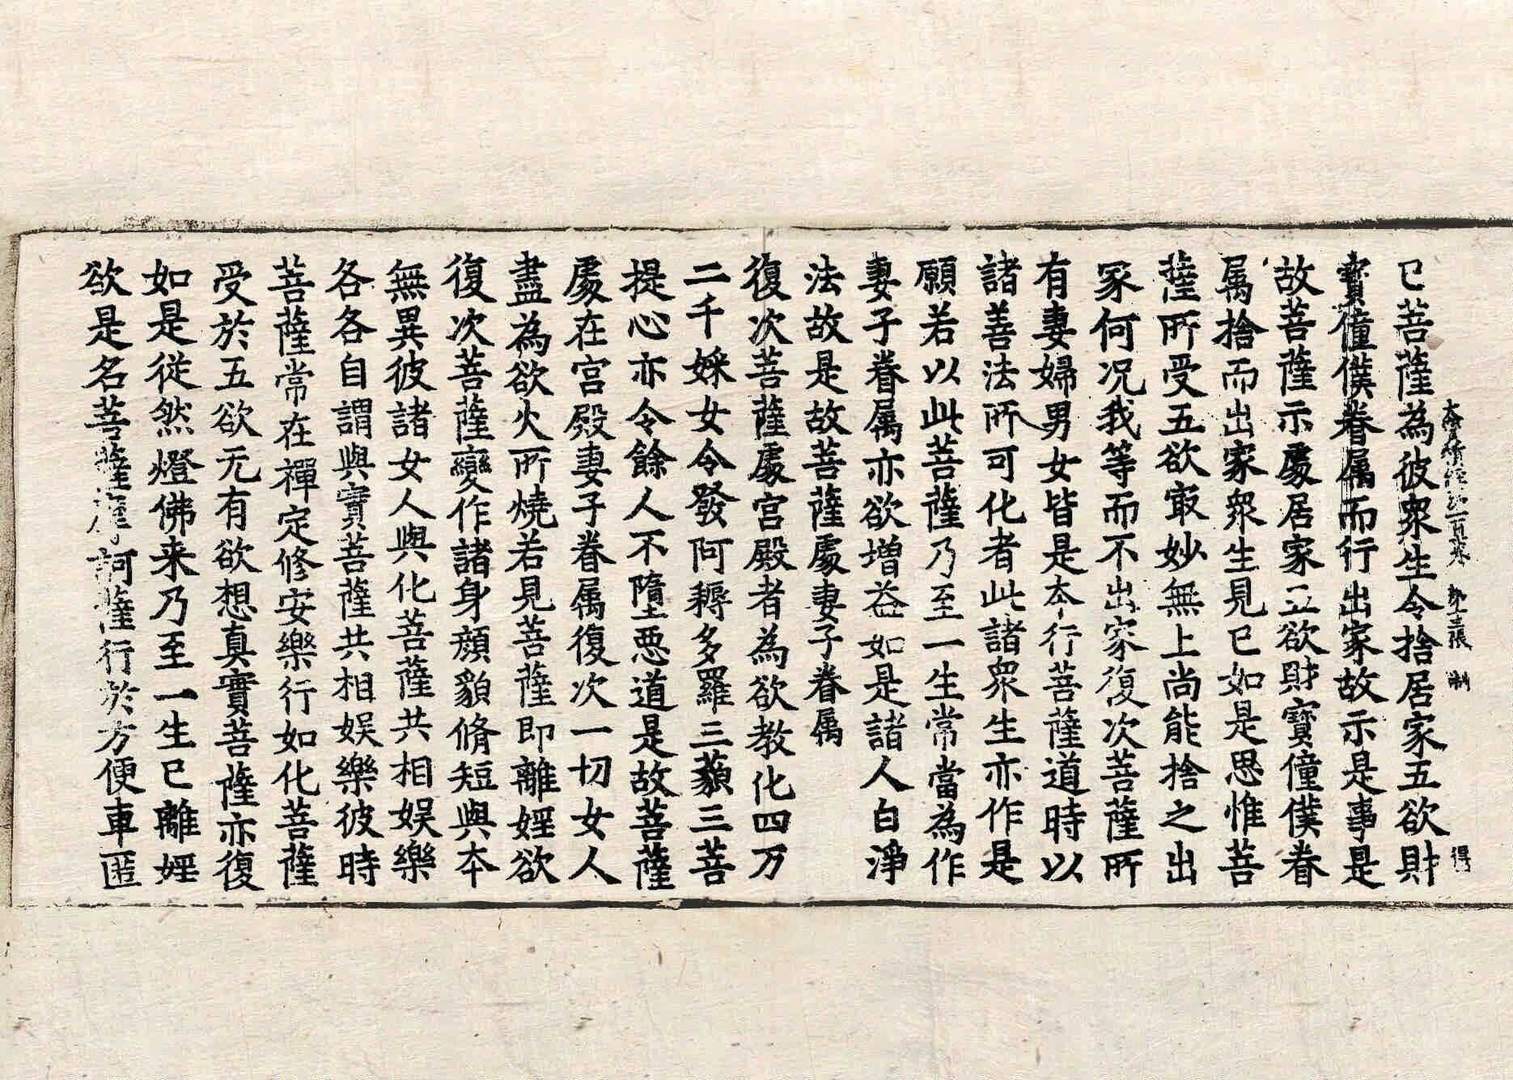 大寶積經第一百六卷 第十三張 制 得
已菩薩為彼衆生令捨居家五欲財
寳僮僕眷属而行出家故示是事是
故菩薩示處居家五欲財寳僮僕眷
属捨而出家衆生見已如是思惟菩
薩所受五欲㝡妙無上尚能捨之出
家何况我等而不出家復次菩薩所
有妻婦男女皆是本行菩薩道時以
諸善法所可化者此諸衆生亦作是
願若以此菩薩乃至一生常當為作
妻子眷属亦欲增益如是諸人白淨
法故是故菩薩處妻子眷属
復次菩薩處宫殿者為欲教化四万
二千婇女令發阿耨多羅三藐三菩
提心亦令餘人不墮惡道是故菩薩
處在宫殿妻子眷属復次一切女人
盡為欲火所燒若見菩薩即離婬欲
復次菩薩變作諸身顔貌脩短與本
無異彼諸女人與化菩薩共相娛樂
各各自謂與實菩薩共相娛樂彼時
菩薩常在禪定修安樂行如化菩薩
受於五欲无有欲想真實菩薩亦復
如是從然燈佛来乃至一生已離婬
欲是名菩薩摩訶薩行於方便車匿